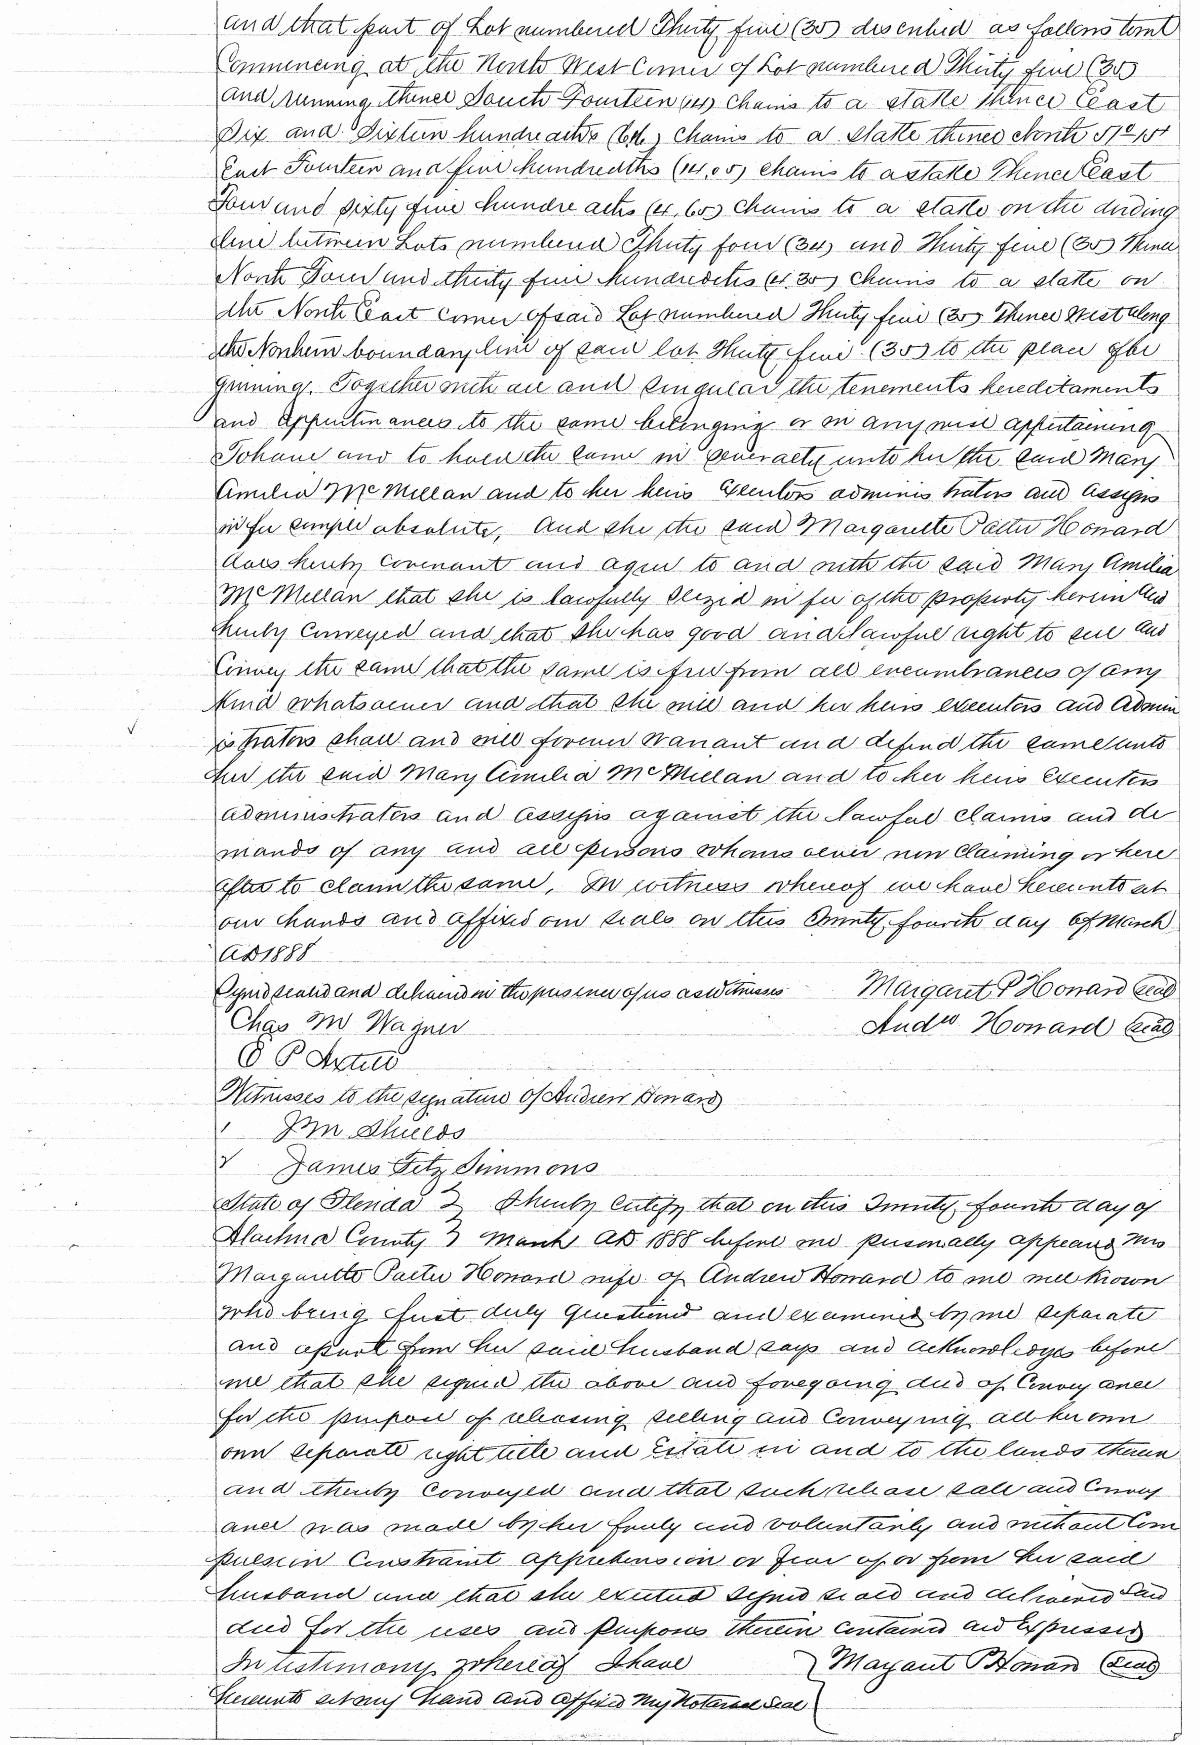 and that part of Lot numbered Thirty five (35) described as follows to wit
Commencing at the North West Corner of Lot numbered Thirty five (35)
and running thence South Fourteen (14) Chains to a stake Thence East
Six and Sixteen hundredths (6.16) Chains to a stake thence North 51°
East Fourteen and five hundredths (14.05) chains to a stake Thence East
Four and sixty five hundredths (4.65) Chains to a stake on the dividing
line between Lots numbered Thirty four (34) and Thirty five (35) Thence
North Four and thirty five hundredths (4.35) Chains to a stake on
the North East corner of said Lot numbered Thirty five (35) Thence West along
the Northern boundary line of said lot Thirty five (35) to the place of be
ginning. Together with all and singular the tenements hereditaments
and appurtinances to the same belonging or in any wise appertaining
To have and to hold the same in severalty unto her the said Mary
Amilia McMillan and to her heirs Executors administrators and assigns
in fee simple absolute, And she the said Margarette Howard
does hereby covenant and agree to and with the said Mary Amilia
McMillan that she is lawfully seized in fee of the property herein and
hereby Conveyed and that she has good and lawful right to sell and
Convey the same that the same is free from all encumbrances of any
kind whatsoever and that she will and her heirs executors and admin
istrators shall and will forever warrant and defend the same unto
her the said Mary Amilia McMillan and to her heirs Executors
administrators and assigns against the lawful claims and de
mands of any and all persons whomsoever now claiming or here
after to claim the same, In witness whereof we have hereunto set
our hands and affixed our seals on this Twenty fourth day of March
AD 1888
Signed sealed and delivered in the presence of us as witnesses Margaret P Howard (seal)
Chas M Wagner Andw Howard (seal)
E P Axtell
Witnesses to the signature of Andrew Howard
1 J M Shields
2 James Fitz Simmons
State of Florida } I hereby certify that on this Twenty fourth day of
Alachua County } March AD 1888 before me personally appeared Mrs
Margarette Howard wife of Andrew Howard to me well known
who being first duly questioned and examined by me separate
and apart from her said husband says and acknowledges before
me that she signed the above and foregoing deed of Convey ance
for the purpose of releasing selling and Conveying all her own
own separate right title and Estate in and to the lands therein
and thereby conveyed and that such release sale and Convey
ance was made by her freely and voluntarily and without Com
pulsion Constraint apprehension or fear of or from her said
husband and that she executed signed sealed and delivered said
deed for the uses and purposes therein contained and Expressed
In testimony whereof I have } Margaret P Howard (seal)
hereunto set my hand and affixed my Notarial Seal